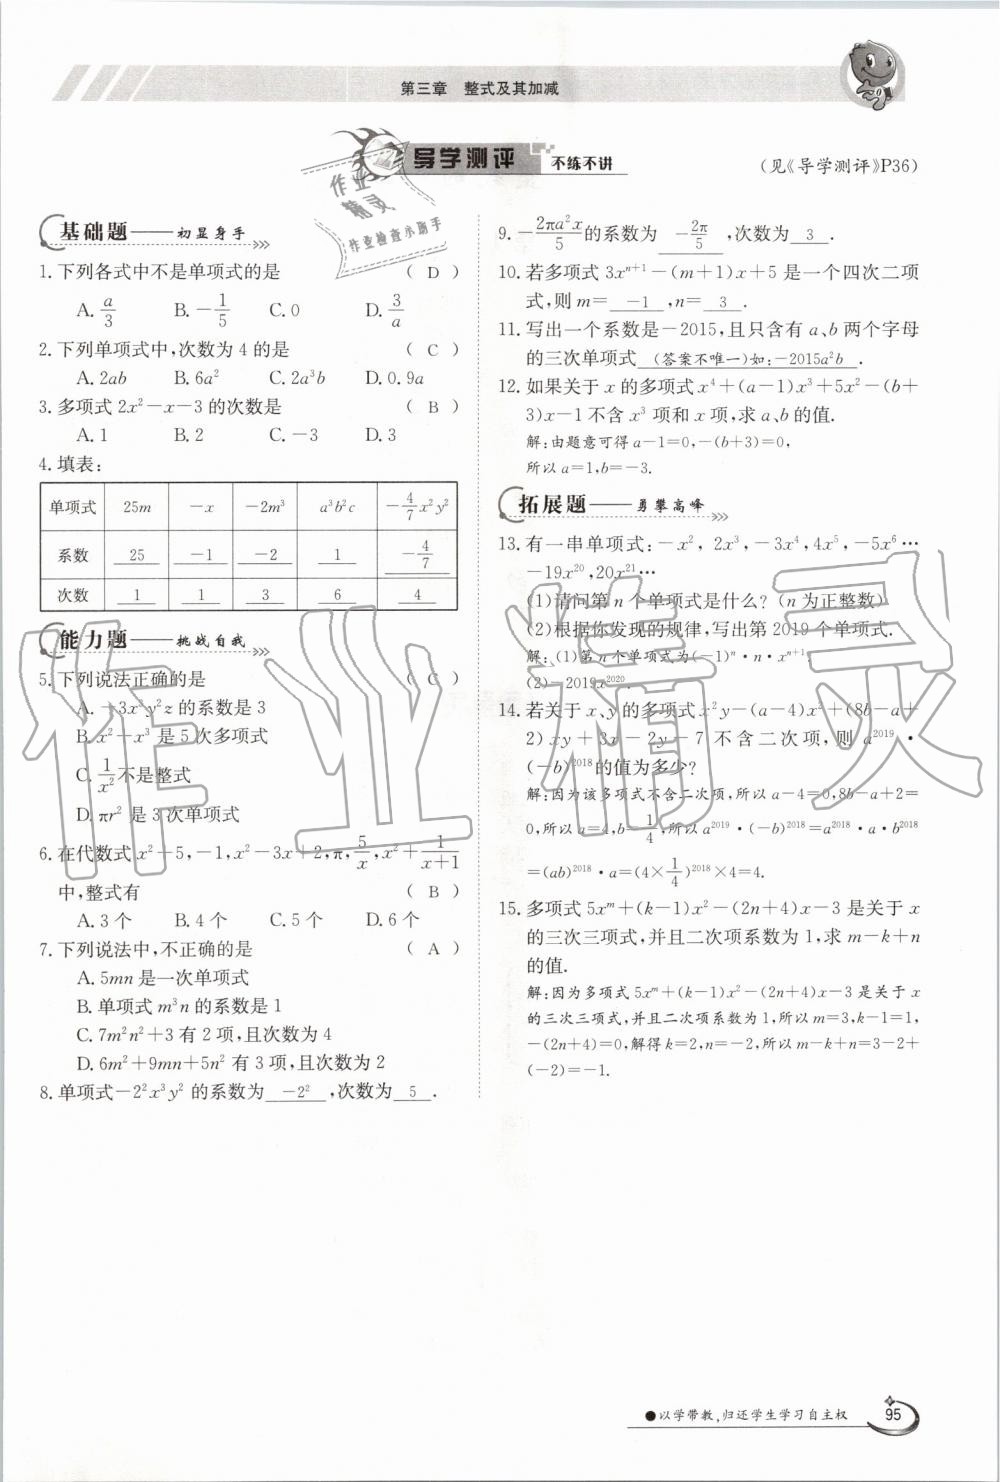 第三章 整式及其加减
导学测评 不练不讲
(见《导学测评》P36)
基础题——初显身手
1. 下列各式中不是单项式的是 ( D )
A. a/3 B. -1/5 C. 0 D. 3/a
2. 下列单项式中,次数为 4 的是 ( C )
A. 2ab B. 6a² C. 2a³b D. 0.9a
3. 多项式 2x²-x-3 的次数是 ( B )
A. 1 B. 2 C. -3 D. 3
4. 填表:
单项式 25m -x -2m³ a³b²c -4/7x²y²
系数 25 -1 -2 1 -4/7
次数 1 1 3 6 4
能力题——挑战自我
5. 下列说法正确的是 ( C )
A. -3x³y²z 的系数是 3
B. x²+x³ 是 5 次多项式
C. 1/x² 不是整式
D. πr² 是 3 次单项式
6. 在代数式 x²+5,-1,x²-3x+2,π,5/x,x²+1/(x+1)
中,整式有 ( B )
A. 3 个 B. 4 个 C. 5 个 D. 6 个
7. 下列说法中,不正确的是 ( A )
A. 5mn 是一次单项式
B. 单项式 m³n 的系数是 1
C. 7m²n²+3 有 2 项,且次数为 4
D. 6m²+9mn+5n² 有 3 项,且次数为 2
8. 单项式-2²x³y² 的系数为 -2² ,次数为 5 .
9. -2πa²x/5 的系数为 -2π/5 ,次数为 3 .
10. 若多项式 3xⁿ⁺¹-(m+1)x+5 是一个四次二项
式,则 m= -1 ,n= 3 .
11. 写出一个系数是-2015,且只含有 a、b 两个字母
的三次单项式 (答案不唯一)如:-2015a²b .
12. 如果关于 x 的多项式 x⁴+(a-1)x³+5x²-(b+
3)x-1 不含 x³ 项和 x 项,求 a、b 的值.
解:由题意可得 a-1=0,-(b+3)=0,
所以 a=1,b=-3.
拓展题——勇攀高峰
13. 有一串单项式:-x², 2x³,-3x⁴,4x⁵,-5x⁶…
-19x²⁰,20x²¹…
(1)请问第 n 个单项式是什么?(n 为正整数)
(2)根据你发现的规律,写出第 2019 个单项式.
解:(1)第 n 个单项式为(-1)ⁿ·n·xⁿ⁺¹.
(2)-2019x²⁰²⁰.
14. 若关于 x、y 的多项式 x²y-(a-4)x²+(8b-a+
2)xy+3x-2y-7 不含二次项,则 a²⁰¹⁹·
(-b)²⁰¹⁸的值为多少?
解:因为该多项式不含二次项,所以 a-4=0,8b-a+2=
0,所以 a=4,b=1/4,所以 a²⁰¹⁹·(-b)²⁰¹⁸=a²⁰¹⁸·a·b²⁰¹⁸
=(ab)²⁰¹⁸·a=(4×1/4)²⁰¹⁸×4=4.
15. 多项式 5xᵐ+(k-1)x²-(2n+4)x-3 是关于 x
的三次三项式,并且二次项系数为 1,求 m-k+n
的值.
解:因为多项式 5xᵐ+(k-1)x²-(2n+4)x-3 是关于 x
的三次三项式,并且二次项系数为 1,所以 m=3,k-1=1,
-(2n+4)=0,解得 k=2,n=-2,所以 m-k+n=3-2+
(-2)=-1.
●以学带教,归还学生学习自主权
95
作业
精灵
作业检查小助手
作业精灵